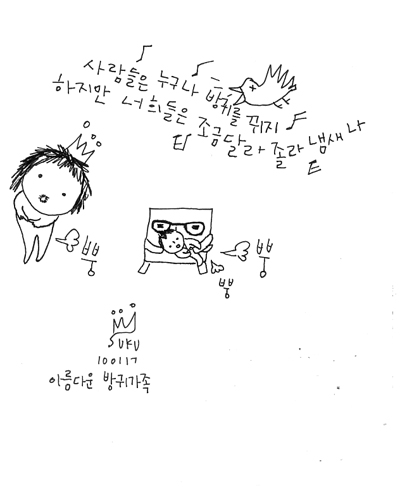 사람들은 누구나 방귀를 뀌지
하지만 너희들은 조금 달라 졸라 냄새 나
뿡
뿡
뿡
SUKU
100117
아름다운 방귀가족